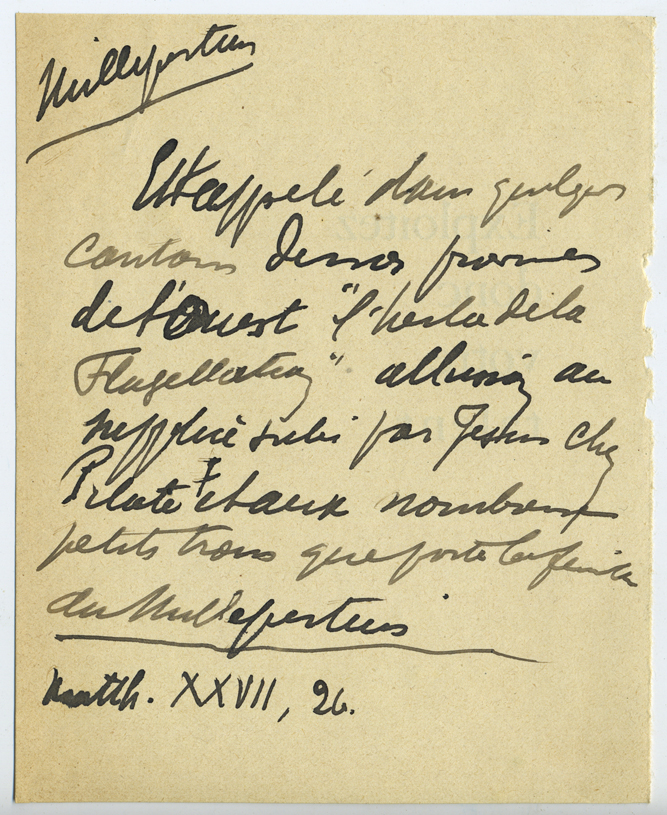 Millepertuis
Est appelé dans quelques
cantons de nos provinces
de l'Ouest "l'herbe de la
Flagellation" allusion au
supplice subi par Jesus chez
Pilate et aux nombreux
petits trous que porte la feuille
du Millepertuis
Matth. XXVII, 26.